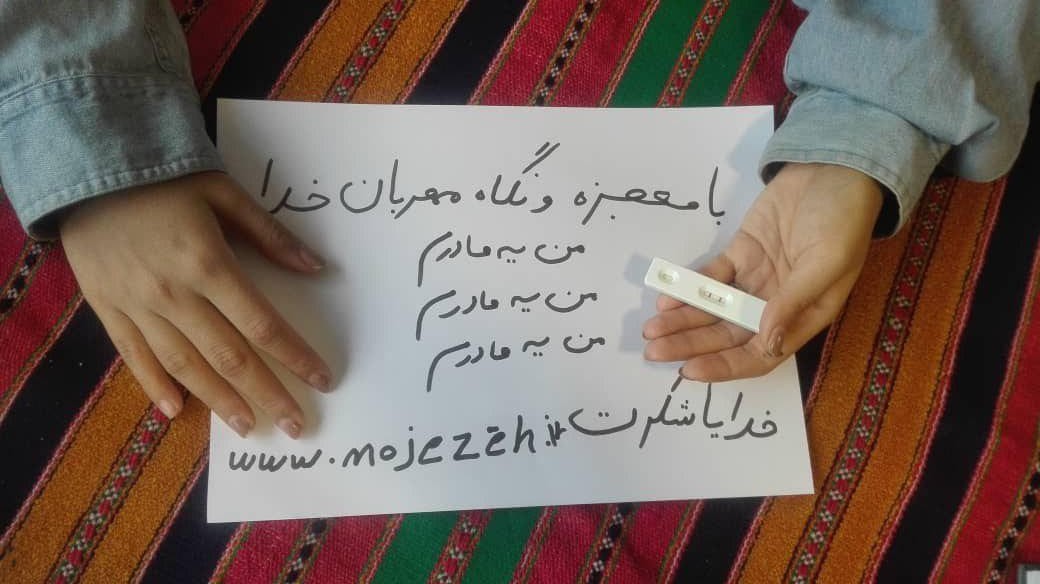 با معجزه و نگاه مهربان خدا
من یه مادرم
من یه مادرم
من یه مادرم
خدایا شکرت
www.mojezeh.ir